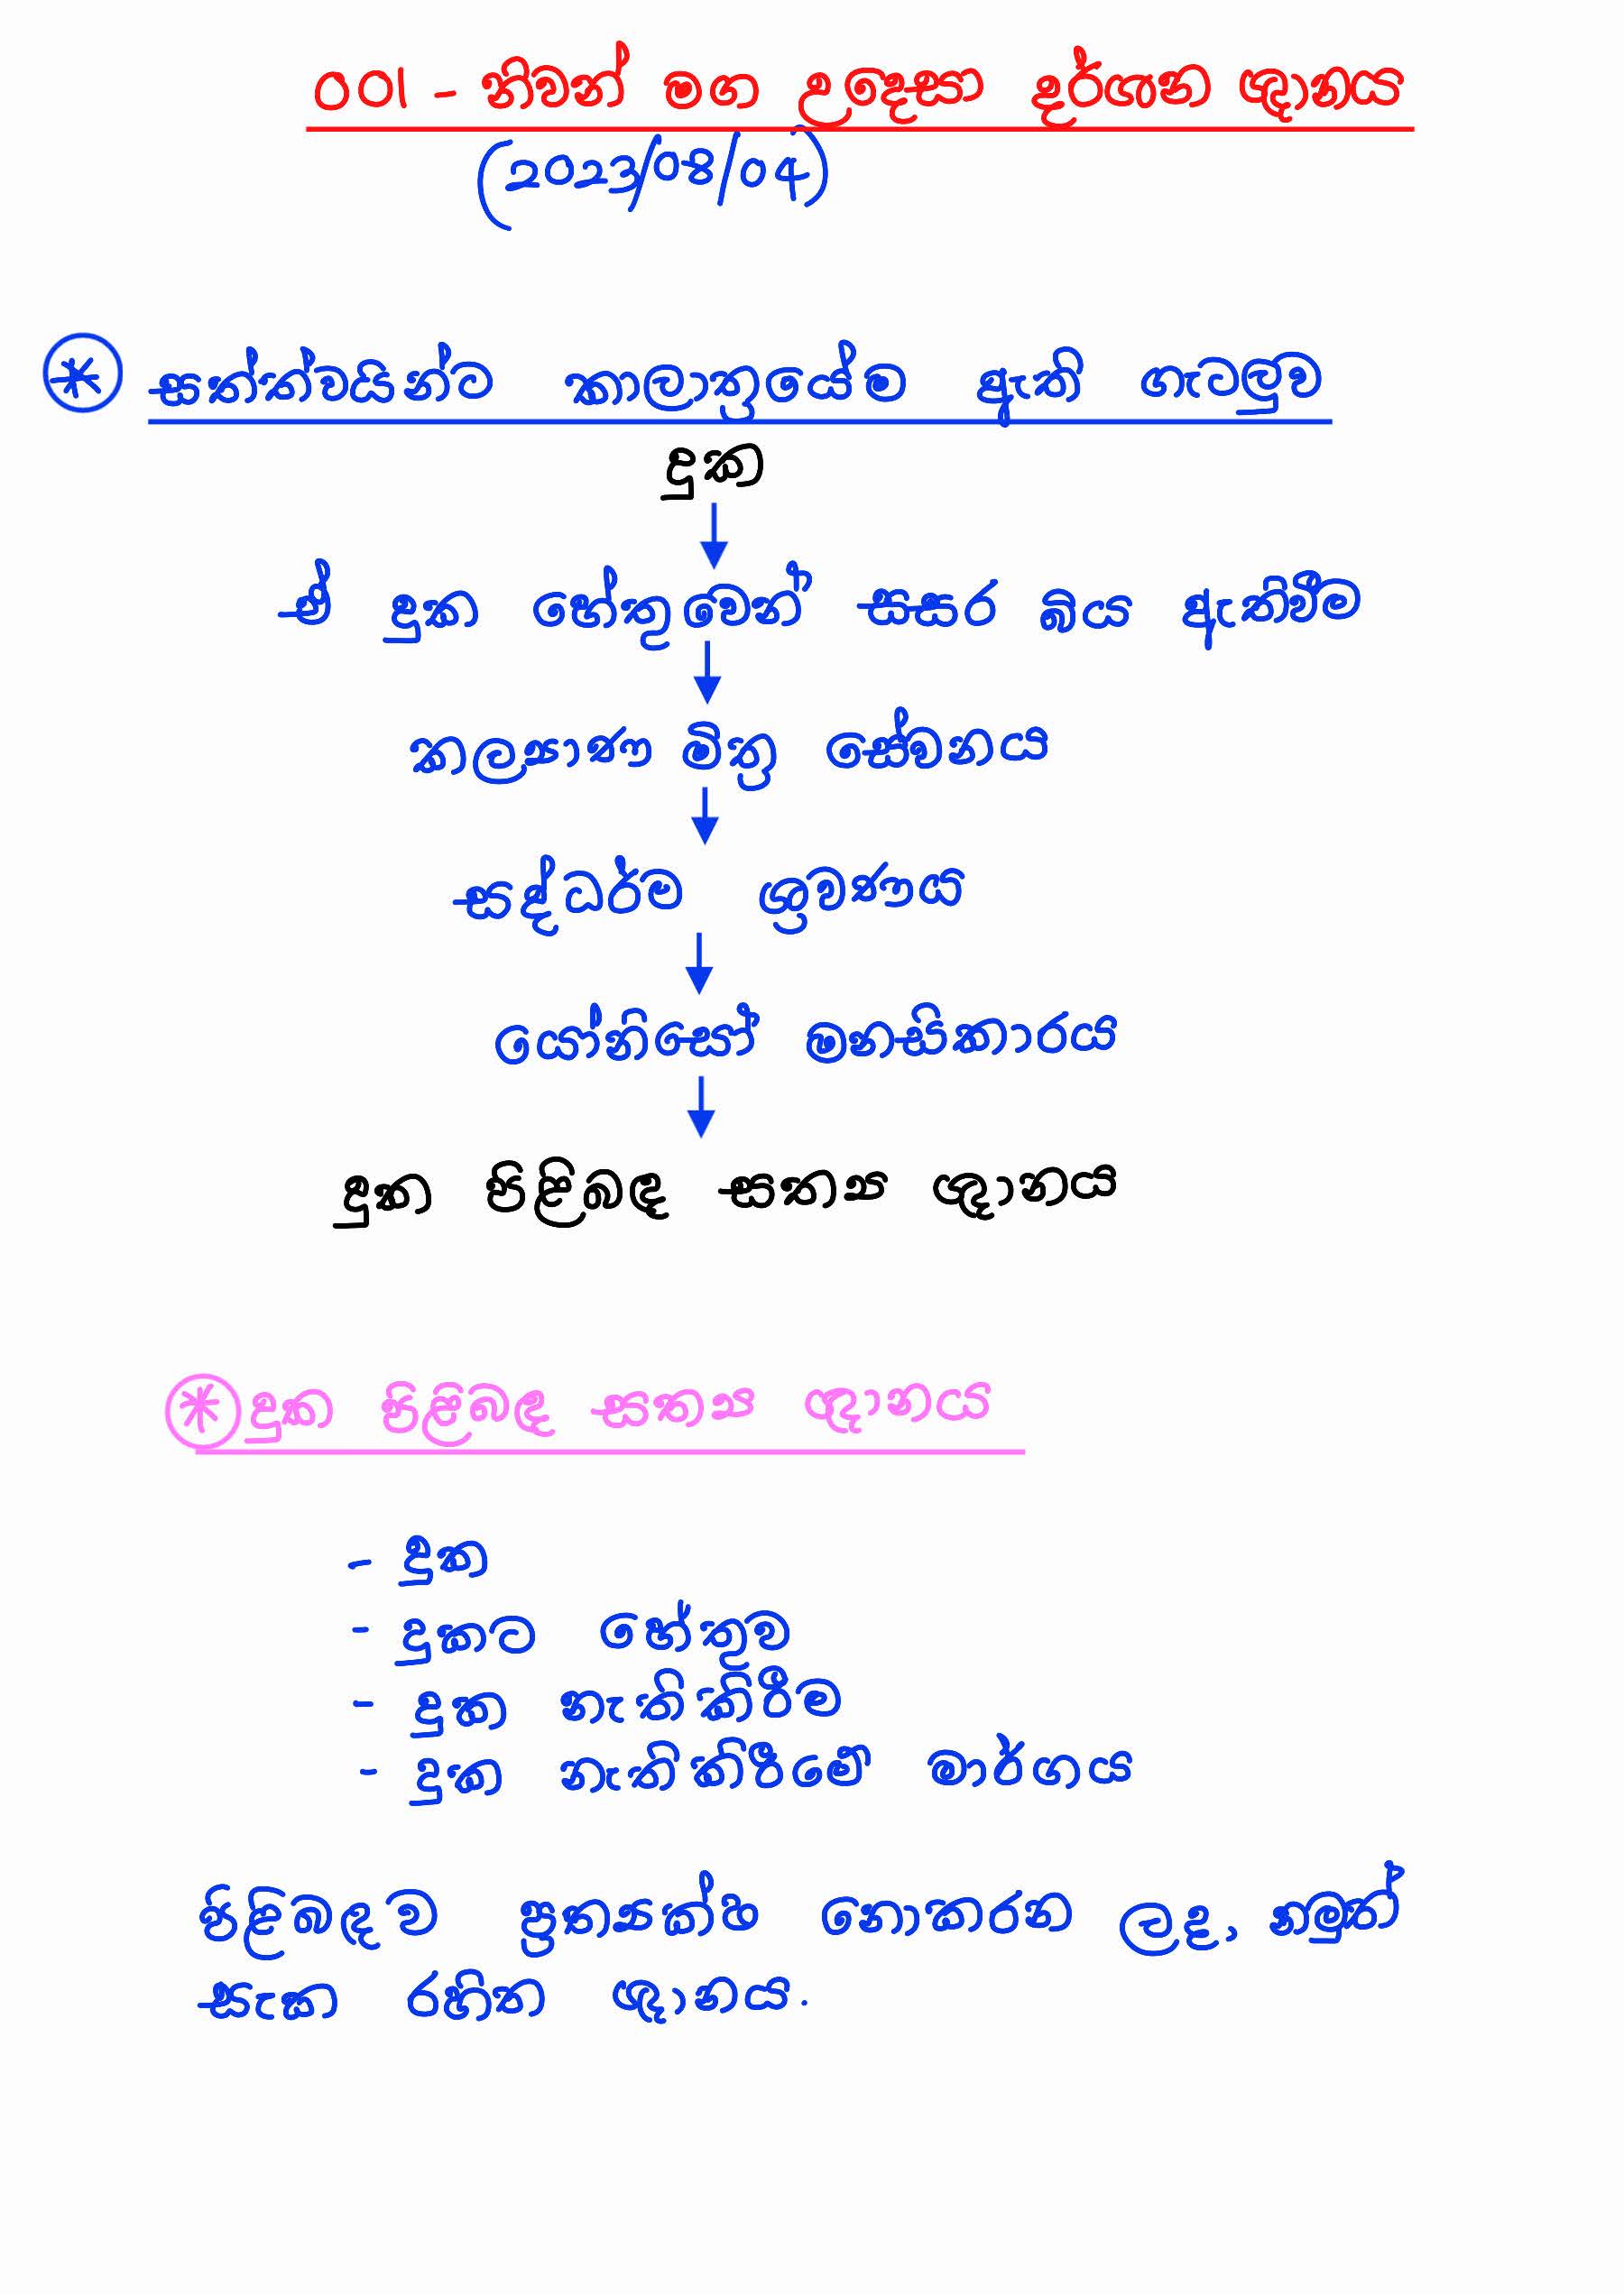 001 - නිවන් මග උදෙසා දර්ශන ඥානය
(2023/08/04)
* සත්ත්වයින්ට කාලාත්‍රයේම ඇති ගැටලුව
දුක
ඒ දුක හේතුවෙන් සසර බිය ඇතිවීම
කල්‍යාණ මිත්‍ර සේවනය
සද්ධර්ම ශ්‍රවණය
යෝනිසෝ මනසිකාරය
දුක පිළිබඳ සත්‍ය ඥානය
* දුක පිළිබඳ සත්‍ය ඥානය
- දුක
- දුකට හේතුව
- දුක නැතිකිරීම
- දුක නැතිකිරීමේ මාර්ගය
පිළිබඳව ප්‍රත්‍යක්ෂ නොකරන ලද, නමුත්
සැක රහිත ඥානය.